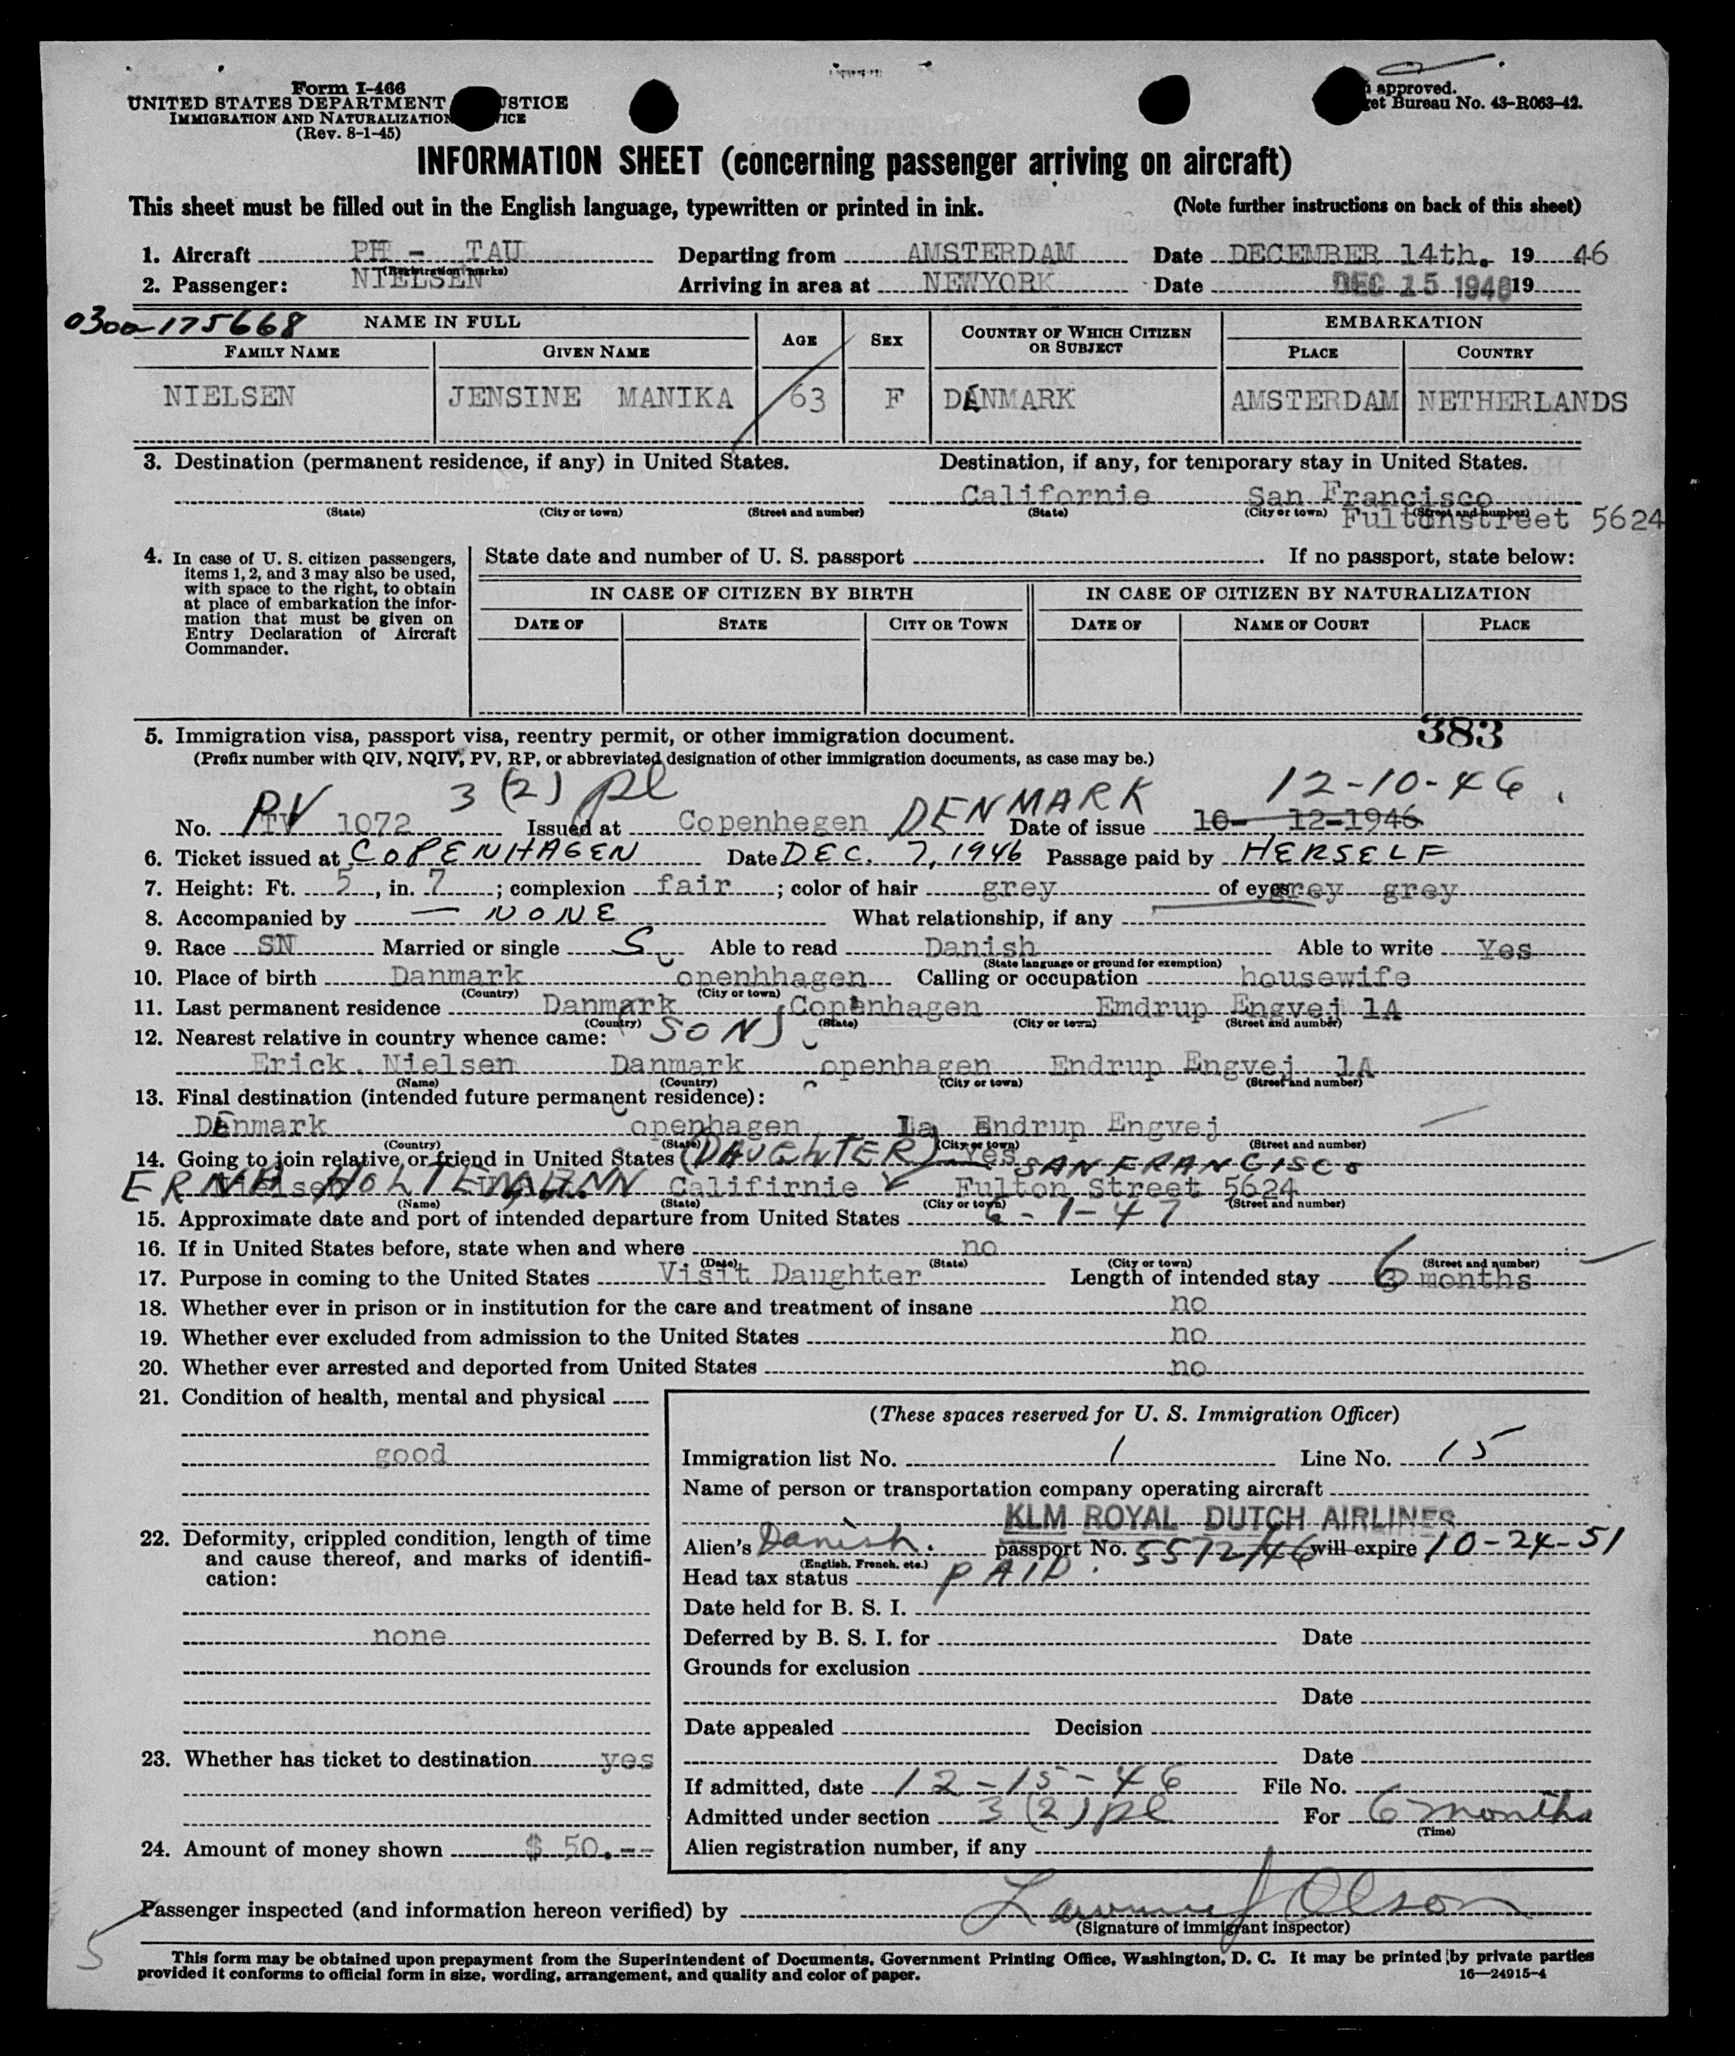 Form I-466
UNITED STATES DEPARTMENT JUSTICE
IMMIGRATION AND NATURALIZATION SERVICE
(Rev. 8-1-45)
approved.
Budget Bureau No. 43-R063-42.
INFORMATION SHEET (concerning passenger arriving on aircraft)
This sheet must be filled out in the English language, typewritten or printed in ink. (Note further instructions on back of this sheet)
1. Aircraft PH - TAU Departing from AMSTERDAM Date DECEMBER 14th. 19 46
(Registration marks)
2. Passenger: NIELSEN Arriving in area at NEWYORK Date DEC 15 1946 19
0300-175668 NAME IN FULL AGE SEX COUNTRY OF WHICH CITIZEN OR SUBJECT EMBARKATION
FAMILY NAME GIVEN NAME PLACE COUNTRY
NIELSEN JENSINE MANIKA 63 F DENMARK AMSTERDAM NETHERLANDS
3. Destination (permanent residence, if any) in United States. Destination, if any, for temporary stay in United States.
Californie San Francisco
(State) (City or town) (Street and number) (State) (City or town) (Street and number)
Fultonstreet 5624
4. In case of U. S. citizen passengers, items 1, 2, and 3 may also be used, with space to the right, to obtain at place of embarkation the information that must be given on Entry Declaration of Aircraft Commander.
State date and number of U. S. passport If no passport, state below:
IN CASE OF CITIZEN BY BIRTH IN CASE OF CITIZEN BY NATURALIZATION
DATE OF STATE CITY OR TOWN DATE OF NAME OF COURT PLACE
383
5. Immigration visa, passport visa, reentry permit, or other immigration document.
(Prefix number with QIV, NQIV, PV, RP, or abbreviated designation of other immigration documents, as case may be.)
3 (2) pl 12-10-46.
No. PV 1072 Issued at Copenhegen DENMARK Date of issue 10- 12-1946
6. Ticket issued at COPENHAGEN Date DEC. 7, 1946 Passage paid by HERSELF
7. Height: Ft. 5, in. 7; complexion fair; color of hair grey of eyes grey grey
8. Accompanied by — NONE What relationship, if any
9. Race SN Married or single S Able to read Danish Able to write Yes
(State language or ground for exemption)
10. Place of birth Danmark openhhagen Calling or occupation housewife
(Country) (City or town)
11. Last permanent residence Danmark Copenhagen Emdrup Engvej 1A
(Country) (State) (City or town) (Street and number)
12. Nearest relative in country whence came: (SON)
Erick. Nielsen Danmark openhagen Endrup Engvej 1A
(Name) (Country) (City or town) (Street and number)
13. Final destination (intended future permanent residence):
Denmark openhagen Endrup Engvej
(Country) (State) (City or town) (Street and number)
14. Going to join relative or friend in United States (DAUGHTER) Yes SAN FRANCISCO
ERNA HOLTEMANN Nielsen Califirnie Fulton Street 5624
(Name) (State) (City or town) (Street and number)
15. Approximate date and port of intended departure from United States 6-1-47
16. If in United States before, state when and where no
(Date) (State) (City or town) (Street and number)
17. Purpose in coming to the United States Visit Daughter Length of intended stay 6 months
18. Whether ever in prison or in institution for the care and treatment of insane no
19. Whether ever excluded from admission to the United States no
20. Whether ever arrested and deported from United States no
21. Condition of health, mental and physical
good
22. Deformity, crippled condition, length of time and cause thereof, and marks of identification:
none
23. Whether has ticket to destination yes
24. Amount of money shown $ 50.--
(These spaces reserved for U. S. Immigration Officer)
Immigration list No. 1 Line No. 15
Name of person or transportation company operating aircraft
KLM ROYAL DUTCH AIRLINES
Alien's Danish. passport No. 5572/46 will expire 10-24-51
(English, French, etc.)
Head tax status PAID.
Date held for B. S. I.
Deferred by B. S. I. for Date
Grounds for exclusion
Date
Date appealed Decision
Date
If admitted, date 12-15-46 File No.
Admitted under section 3 (2) pl For 6 months
(Time)
Alien registration number, if any
Passenger inspected (and information hereon verified) by Lawrence J Olson
(Signature of immigrant inspector)
5
This form may be obtained upon prepayment from the Superintendent of Documents, Government Printing Office, Washington, D. C. It may be printed by private parties
provided it conforms to official form in size, wording, arrangement, and quality and color of paper. 16—24915-4